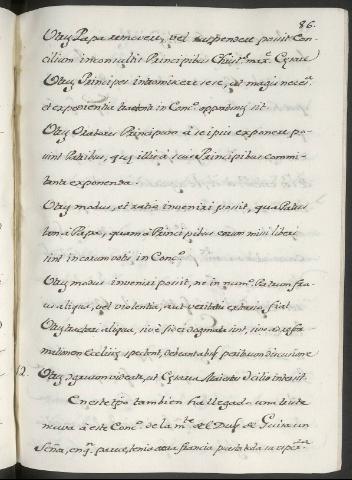 86.
Utrũ Papa removere, vel suspendere possit Con-
cilium inconsultis Principibus Christ.s max.e Cesare
Utrũ Principes intromittere sese, ut magis neces.m
et expedientia tractent in Conc.o oppositum sit.
Utrũ Oratores Principum à se ipsis exponere po-
sint Patribus, quę illis à suis Principibus commi-
tanta exponenda.
Utrũ modus, et ratio inveniri possit, qua Patres
tan à Papa, quam à Principibus eorum missi liberi
sint in eorum votis in Conc.o
Utrũ modus inveniri possit, ne in num.o Patrum fra-
us aliqua, vel violentia, aut veritatis extorsio fiat
Utrũ tractari aliqua, sive fidei dogmata sint, sive ad refor-
mationem Ecclesię spectent, debeant absq peritorum discusione
12. Utrũ operativum videatur, ut Cesarea Maiestas Concilio intersit.
En este tpõ tambien ha llegado una triste
nueva à este Conc.o de la m.te del Duq de Guisa un
Señor, en q.n parece, tenia acua francia puesta toda su esper.za